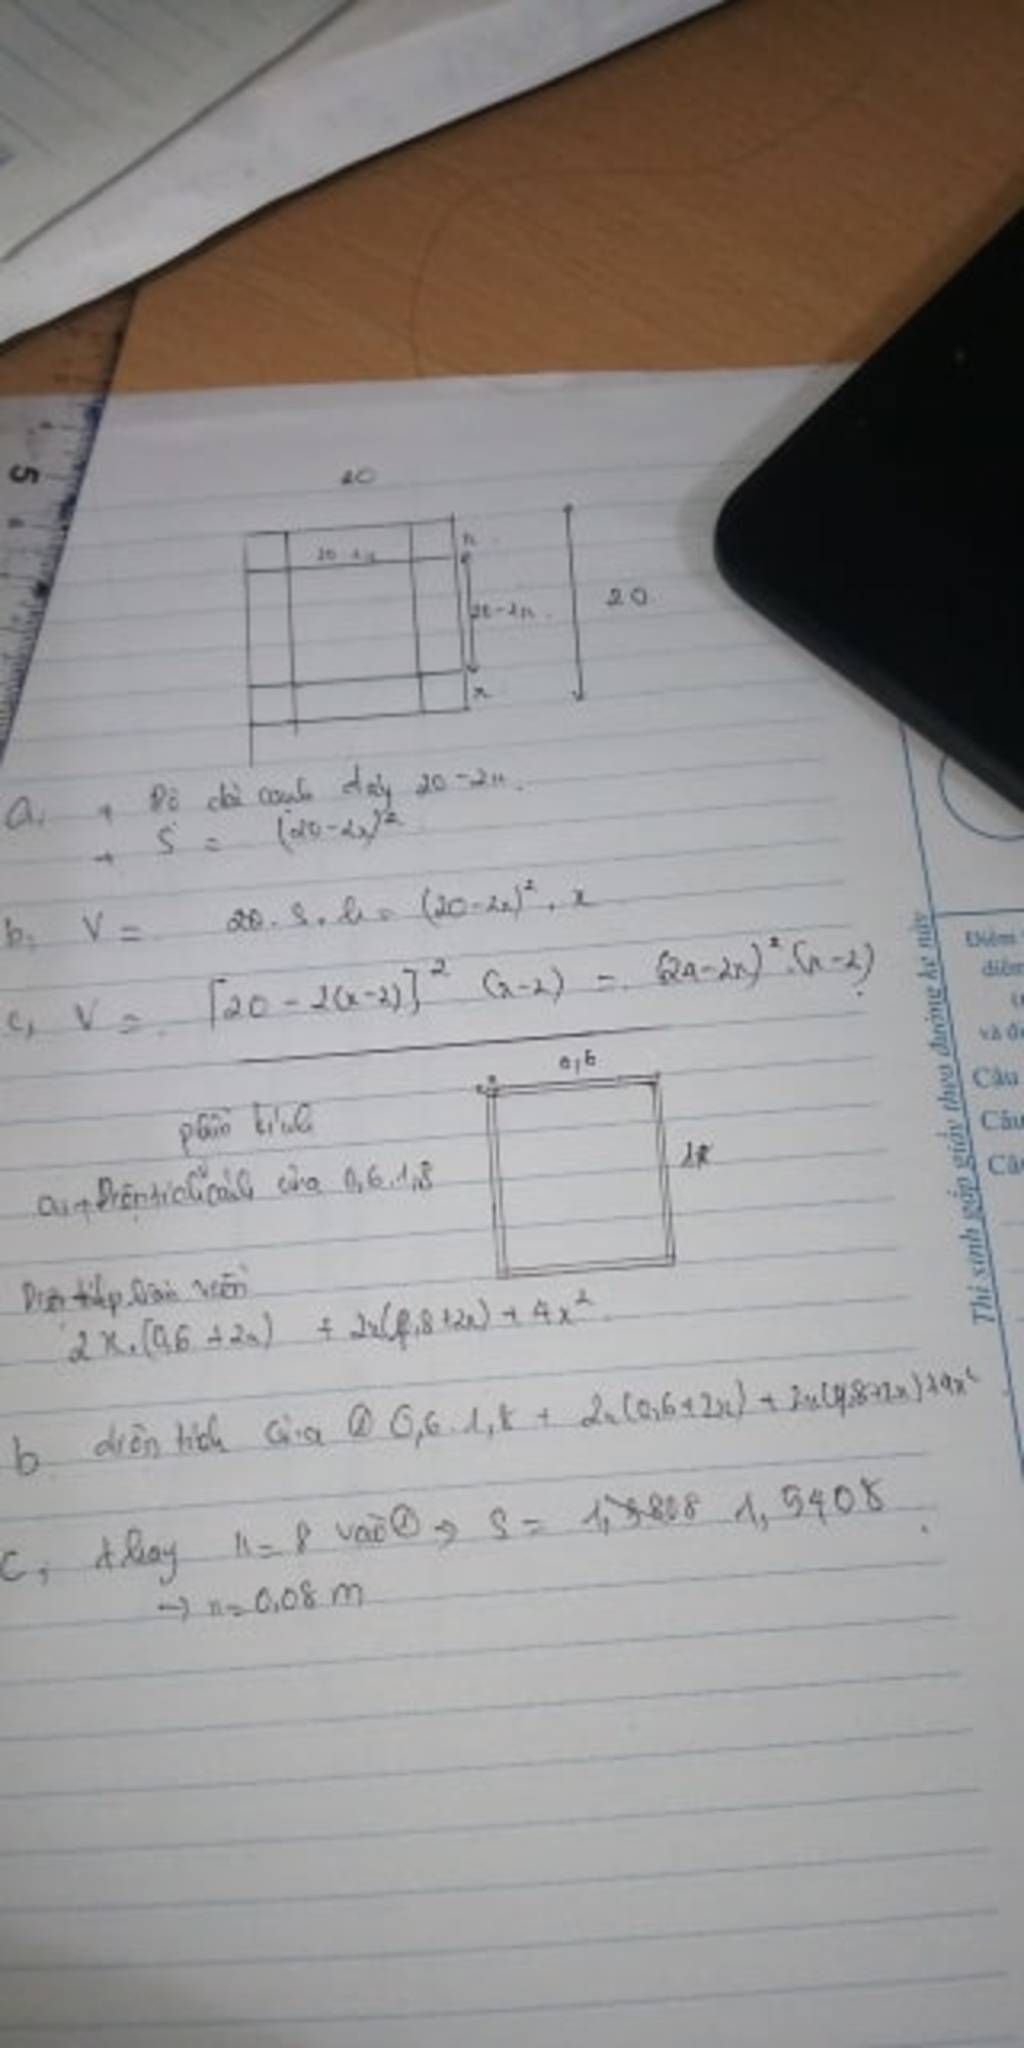 5
20
20-2x
x
20-2x
20
x
a, + Độ dài cạnh đáy 20-2x.
→ S = (20-2x)²
b, V = 20. S.h = (20-2x)². x
c, V = [20-2(x-2)]² (x-2) = (24-2x)².(x-2)
0,6
phần kính
a, + Diện tích cánh cửa 0,6.1,8
Diện tích viền
2x.(0,6+2x) + 2x(1,8+2x)+4x²
b diện tích cửa 0,6.1,8 + 2x(0,6+2x) + 2x(1,8+2x)+4x²
c, thay x=8 vào → S = 1,5408
→ x=0,08 m
Thí sinh gấp giấy theo đường kẻ này
Điểm
điểm
Câu
Câu